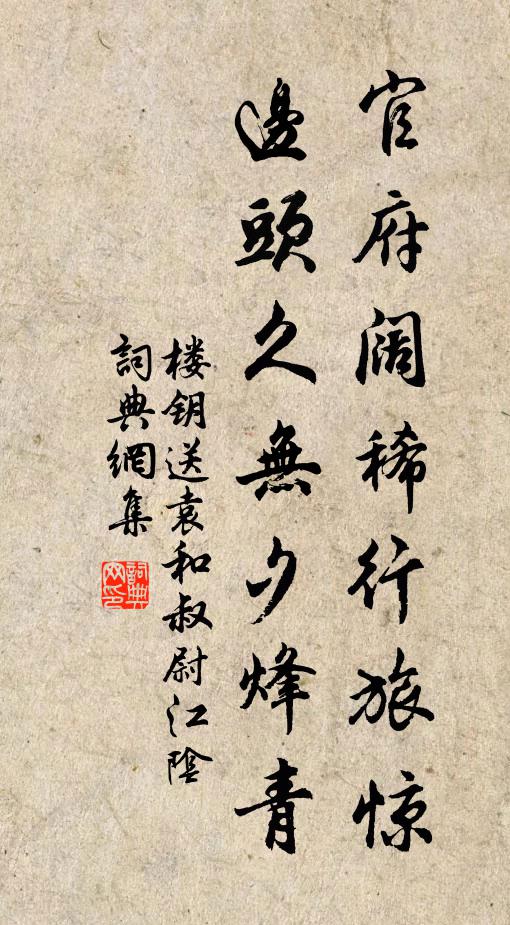 官府阔稀行旅惊
邊頭久無夕烽青
楼钥送袁和叔尉江陰
詞典網集
詞典网印